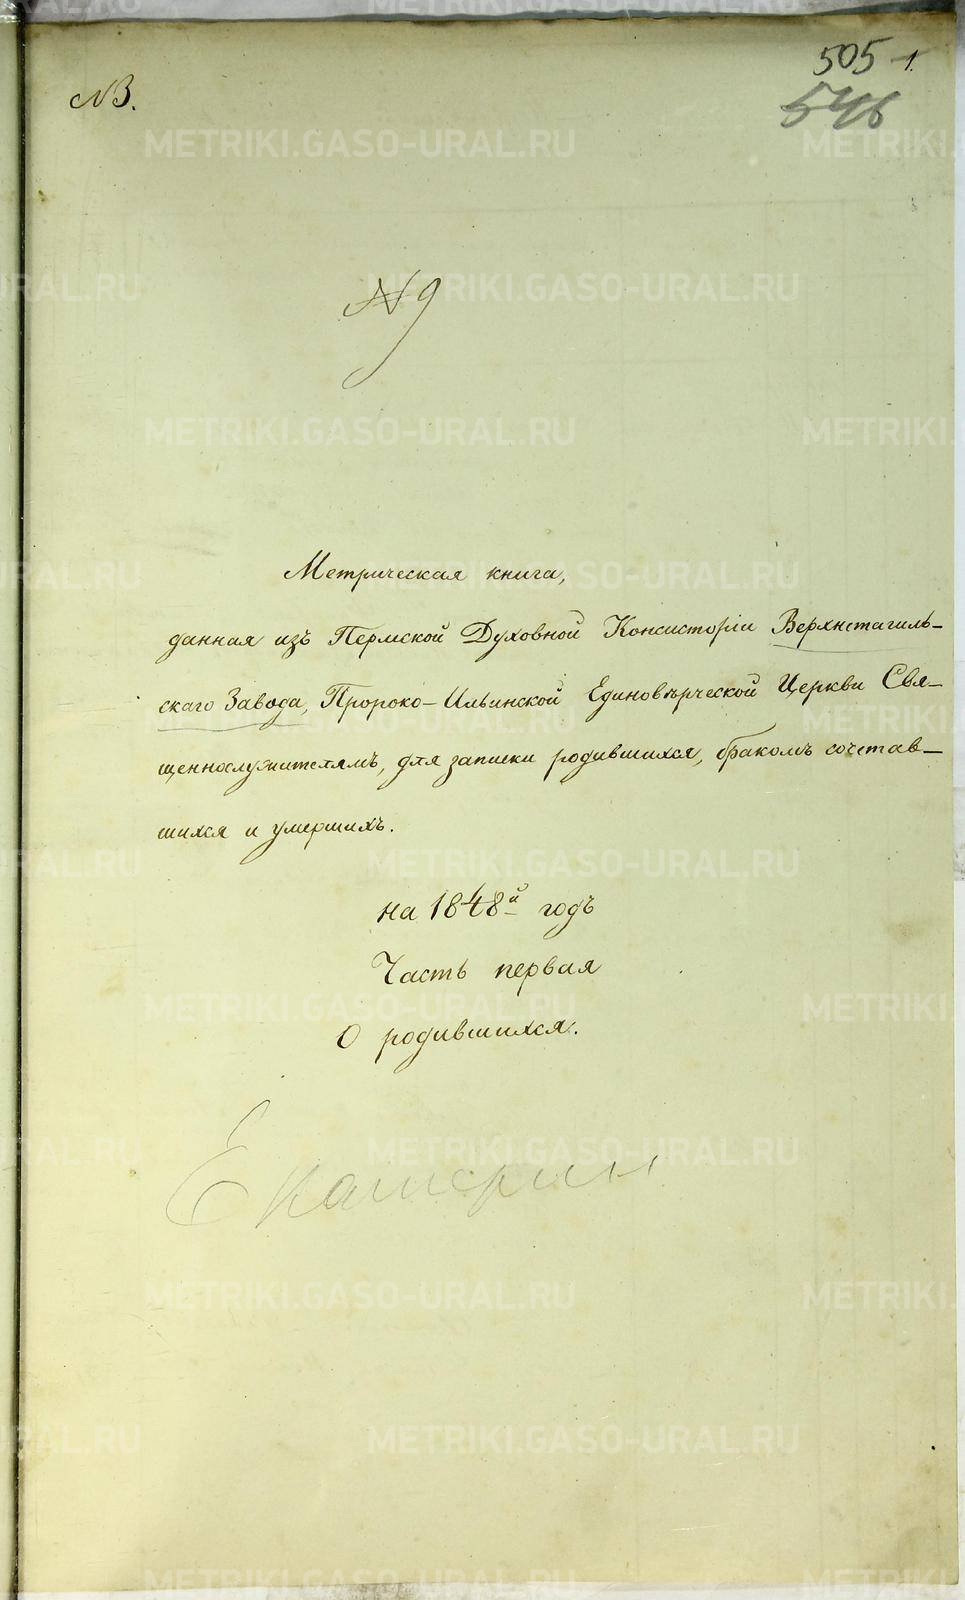 505 1.
NB.
546
№ 9
Метрическая книга,
данная изъ Пермской Духовной Консисторіи Верхнетагиль-
скаго Завода, Пророко-Ильинской Единовѣрческой Церкви Свя-
щеннослужителямъ, для записки родившихся, бракомъ сочетав-
шихся и умершихъ.
на 1848й годъ
Часть первая
О родившихся.
Екатерин
METRIKI.GASO-URAL.RU